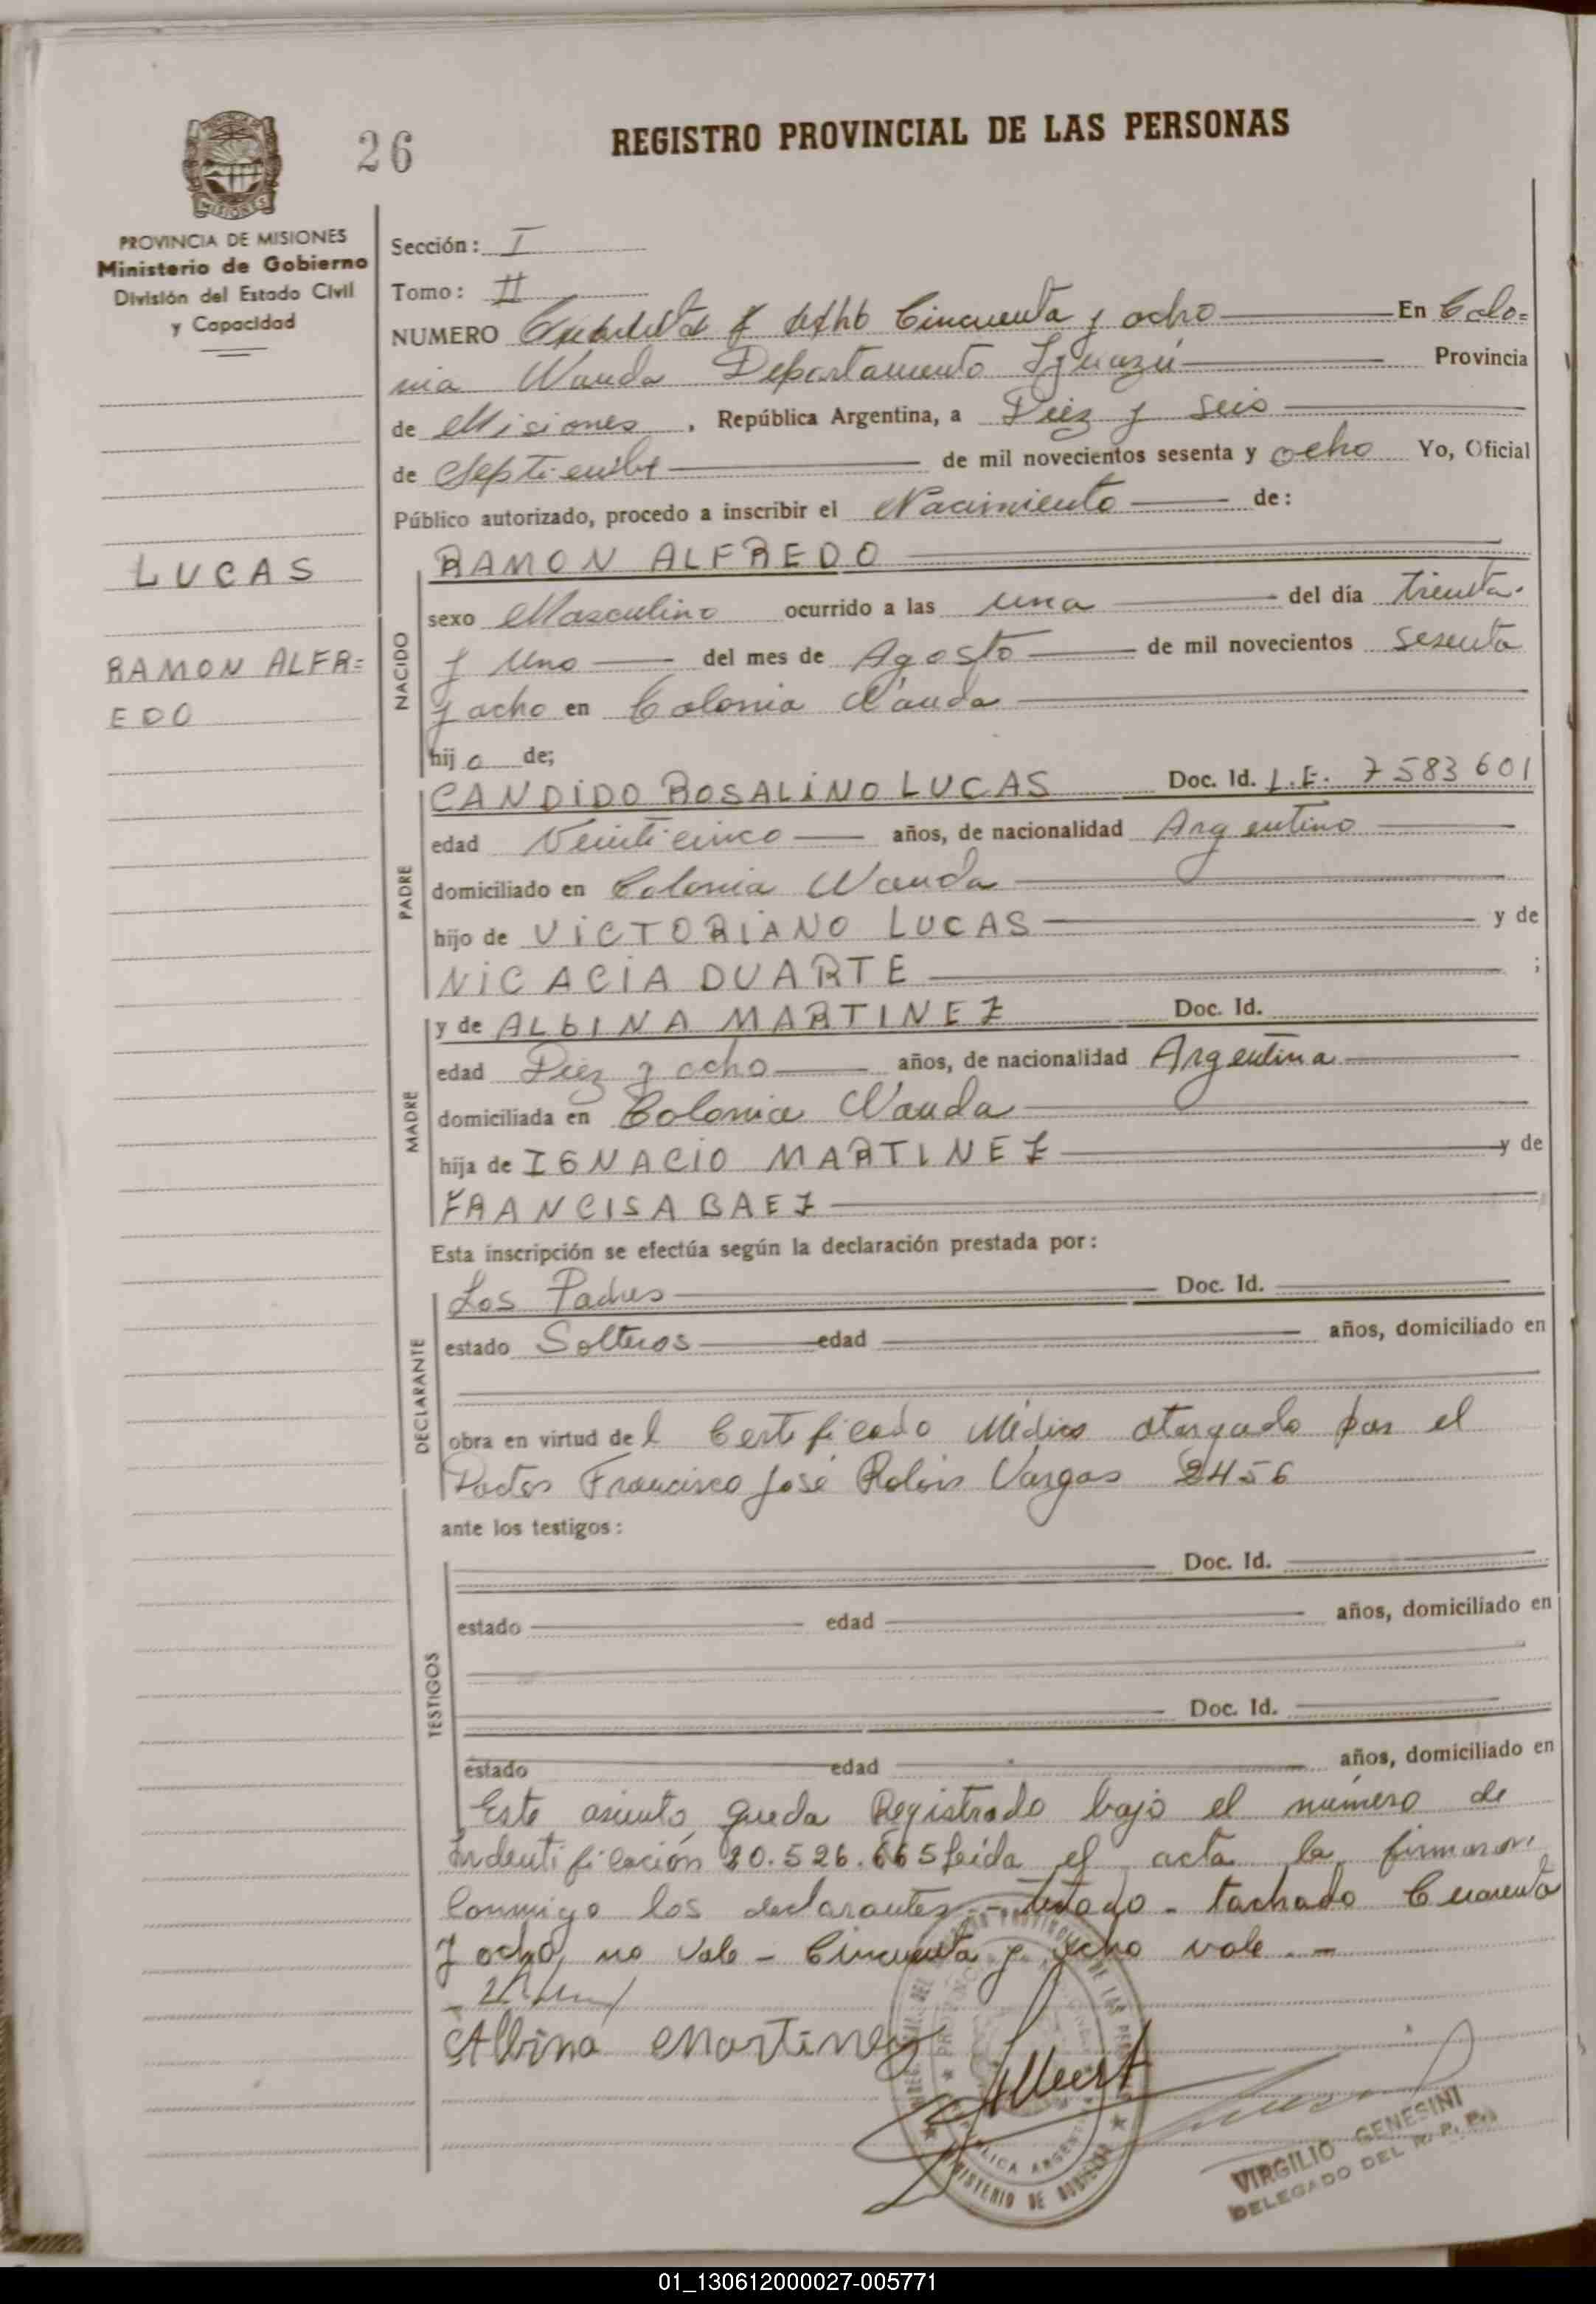 26
REGISTRO PROVINCIAL DE LAS PERSONAS
MISIONES
PROVINCIA DE MISIONES
Ministerio de Gobierno
División del Estado Civil
y Capacidad
LUCAS
RAMON ALFR=
EDO
Sección: I
Tomo: II
NUMERO Cincuenta y ocho En Colo=
nia Wanda Departamento Iguazú Provincia
de Misiones, República Argentina, a Diez y seis
de Septiembre de mil novecientos sesenta y ocho Yo, Oficial
Público autorizado, procedo a inscribir el Nacimiento de:
NACIDO
RAMON ALFREDO
sexo Masculino ocurrido a las una del día treinta
y Uno del mes de Agosto de mil novecientos sesenta
y ocho en Colonia Wanda
hij o de;
PADRE
CANDIDO ROSALINO LUCAS Doc. Id. L.E. 7583601
edad Veinticinco años, de nacionalidad Argentino
domiciliado en Colonia Wanda
hijo de VICTORIANO LUCAS y de
NICACIA DUARTE ;
MADRE
y de ALBINA MARTINEZ Doc. Id.
edad Diez y ocho años, de nacionalidad Argentina
domiciliada en Colonia Wanda
hija de IGNACIO MARTINEZ y de
FRANCISA BAEZ
Esta inscripción se efectúa según la declaración prestada por:
DECLARANTE
Los Padres Doc. Id.
estado Solteros edad años, domiciliado en
obra en virtud del Certificado Médico otorgado por el
Doctor Francisco José Vargas 2456
ante los testigos:
TESTIGOS
Doc. Id.
estado edad años, domiciliado en
Doc. Id.
estado edad años, domiciliado en
Este asiento queda Registrado bajo el número de
Indentificación 20.526.665 leída el acta la firmaron
Conmigo los declarantes - testado - tachado Cuarenta
y ocho no Vale - Cincuenta y ocho vale. -
Albina Martinez
VIRGILIO GENESINI
DELEGADO DEL R. P. P.
01_130612000027-005771